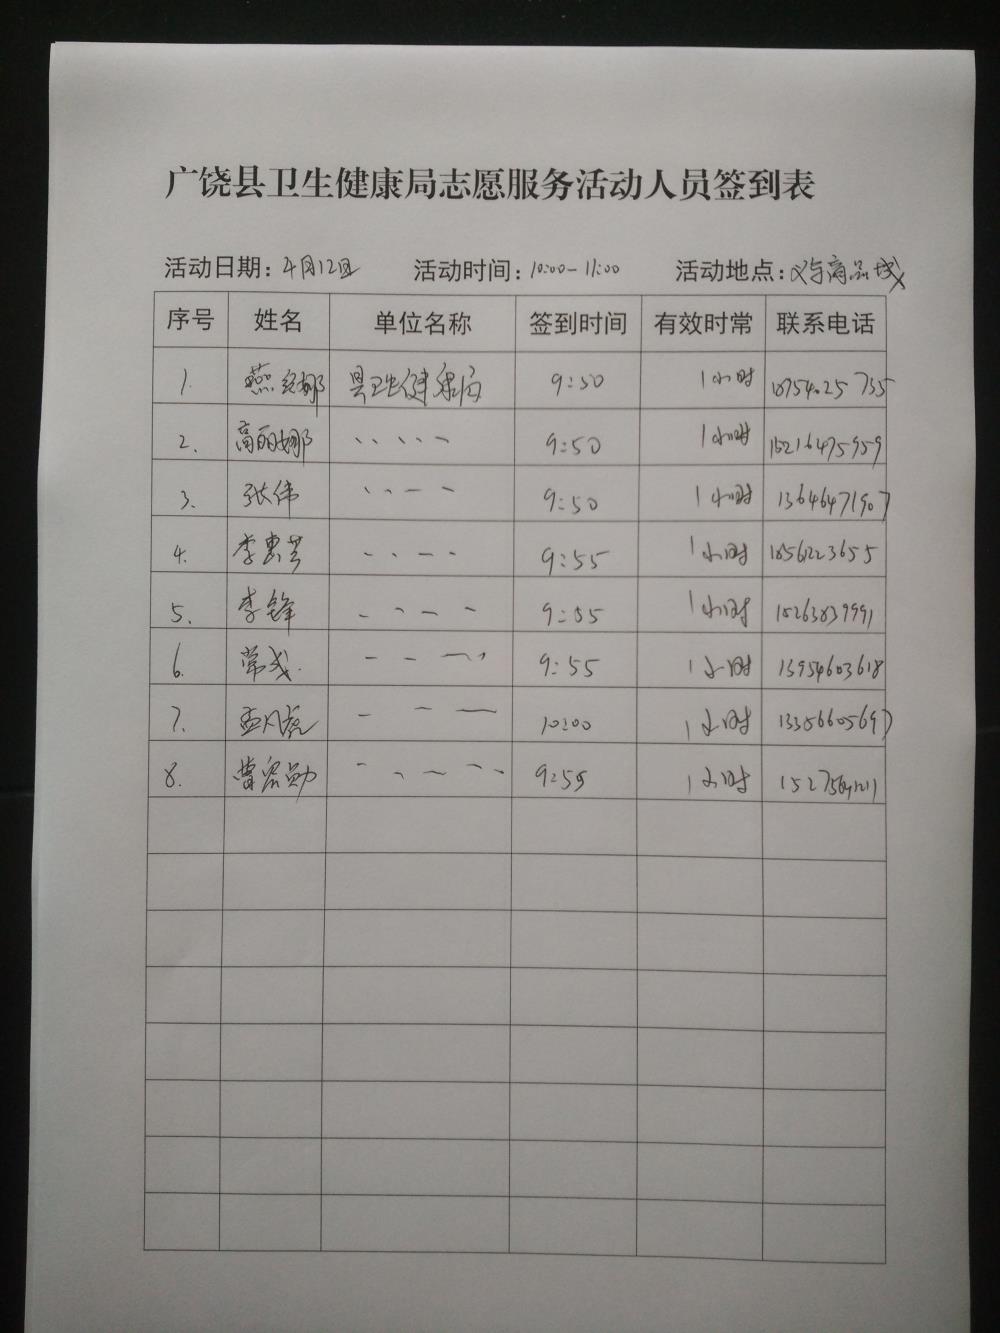 广饶县卫生健康局志愿服务活动人员签到表
活动日期：4月12日 活动时间：10:00-11:00 活动地点：义乌商品城
序号 姓名 单位名称 签到时间 有效时常 联系电话
1. 燕 娜 县卫生健康局 9:50 1小时
2. 高丽娜 9:50 1小时
3. 张伟 9:50 1小时 13646471907
4. 李惠芳 9:55 1小时
5. 李锋 9:55 1小时
6. 常 9:55 1小时 13954603618
7. 孟凡 10:00 1小时
8. 曹 勋 9:55 1小时